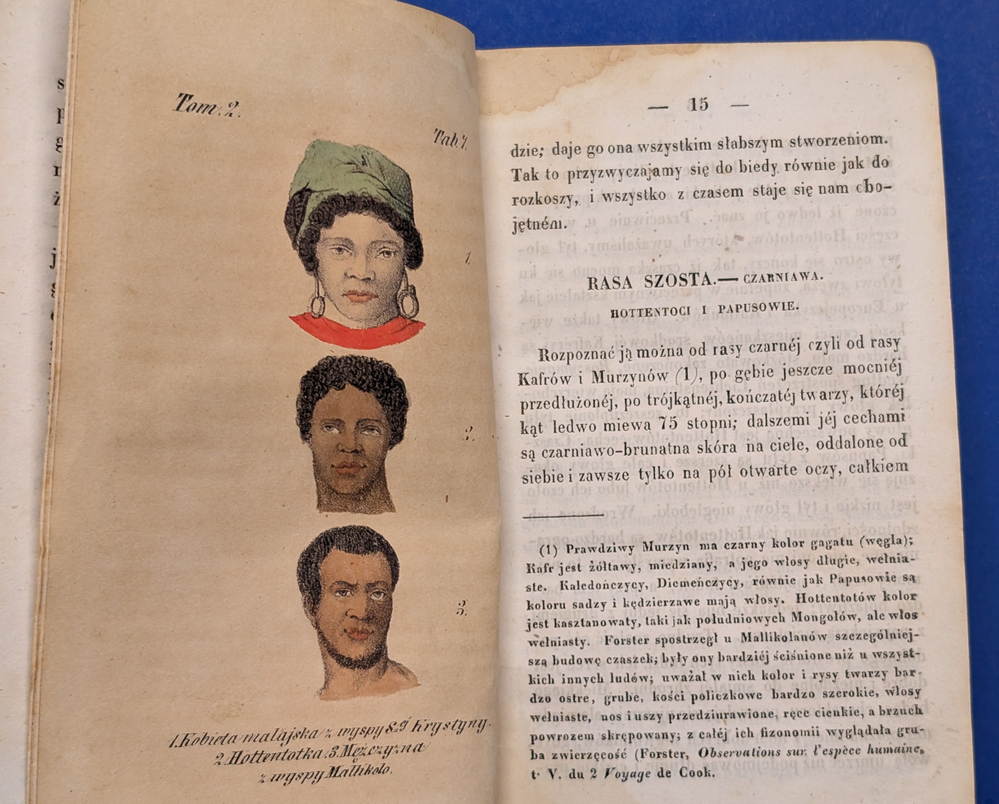 Tom. 2.
Tab. 7.
1.
2.
3.
1. Kobieta malajska z wyspy Sej Krystyny.
2. Hottentotka. 3. Mężczyzna
z wyspy Mallikolo.
— 15 —
dzie; daje go ona wszystkim słabszym stworzeniom.
Tak to przyzwyczajamy się do biedy równie jak do
rozkoszy, i wszystko z czasem staje się nam obo-
jętném.
RASA SZOSTA.— CZARNIAWA.
HOTTENTOCI I PAPUSOWIE.
Rozpoznać ją można od rasy czarnéj czyli od rasy
Kafrów i Murzynów (1), po gębie jeszcze mocniéj
przedłużonéj, po trójkątnéj, kończatéj twarzy, któréj
kąt ledwo miewa 75 stopni; dalszemi jéj cechami
są czarniawo-brunatna skóra na ciele, oddalone od
siebie i zawsze tylko na pół otwarte oczy, całkiem
(1) Prawdziwy Murzyn ma czarny kolor gagatu (węgla);
Kafr jest żółtawy, miedziany, a jego włosy długie, wełnia-
ste. Kaledończycy, Diemeńczycy, równie jak Papusowie są
koloru sadzy i kędzierzawe mają włosy. Hottentotów kolor
jest kasztanowaty, taki jak południowych Mongołów, ale włos
wełniasty. Forster spostrzegł u Mallikolanów szczególniej-
szą budowę czaszek; były ony bardziéj ściśnione niż u wszyst-
kich innych ludów; uważał w nich kolor i rysy twarzy bar-
dzo ostre, grube, kości policzkowe bardzo szerokie, włosy
wełniaste, nos i uszy przedziurawione, ręce cienkie, a brzuch
powrozem skrępowany; z całéj ich fizonomii wyglądała gru-
ba zwierzęcość (Forster, Observations sur l'espèce humaine,
t. V. du 2 Voyage de Cook.